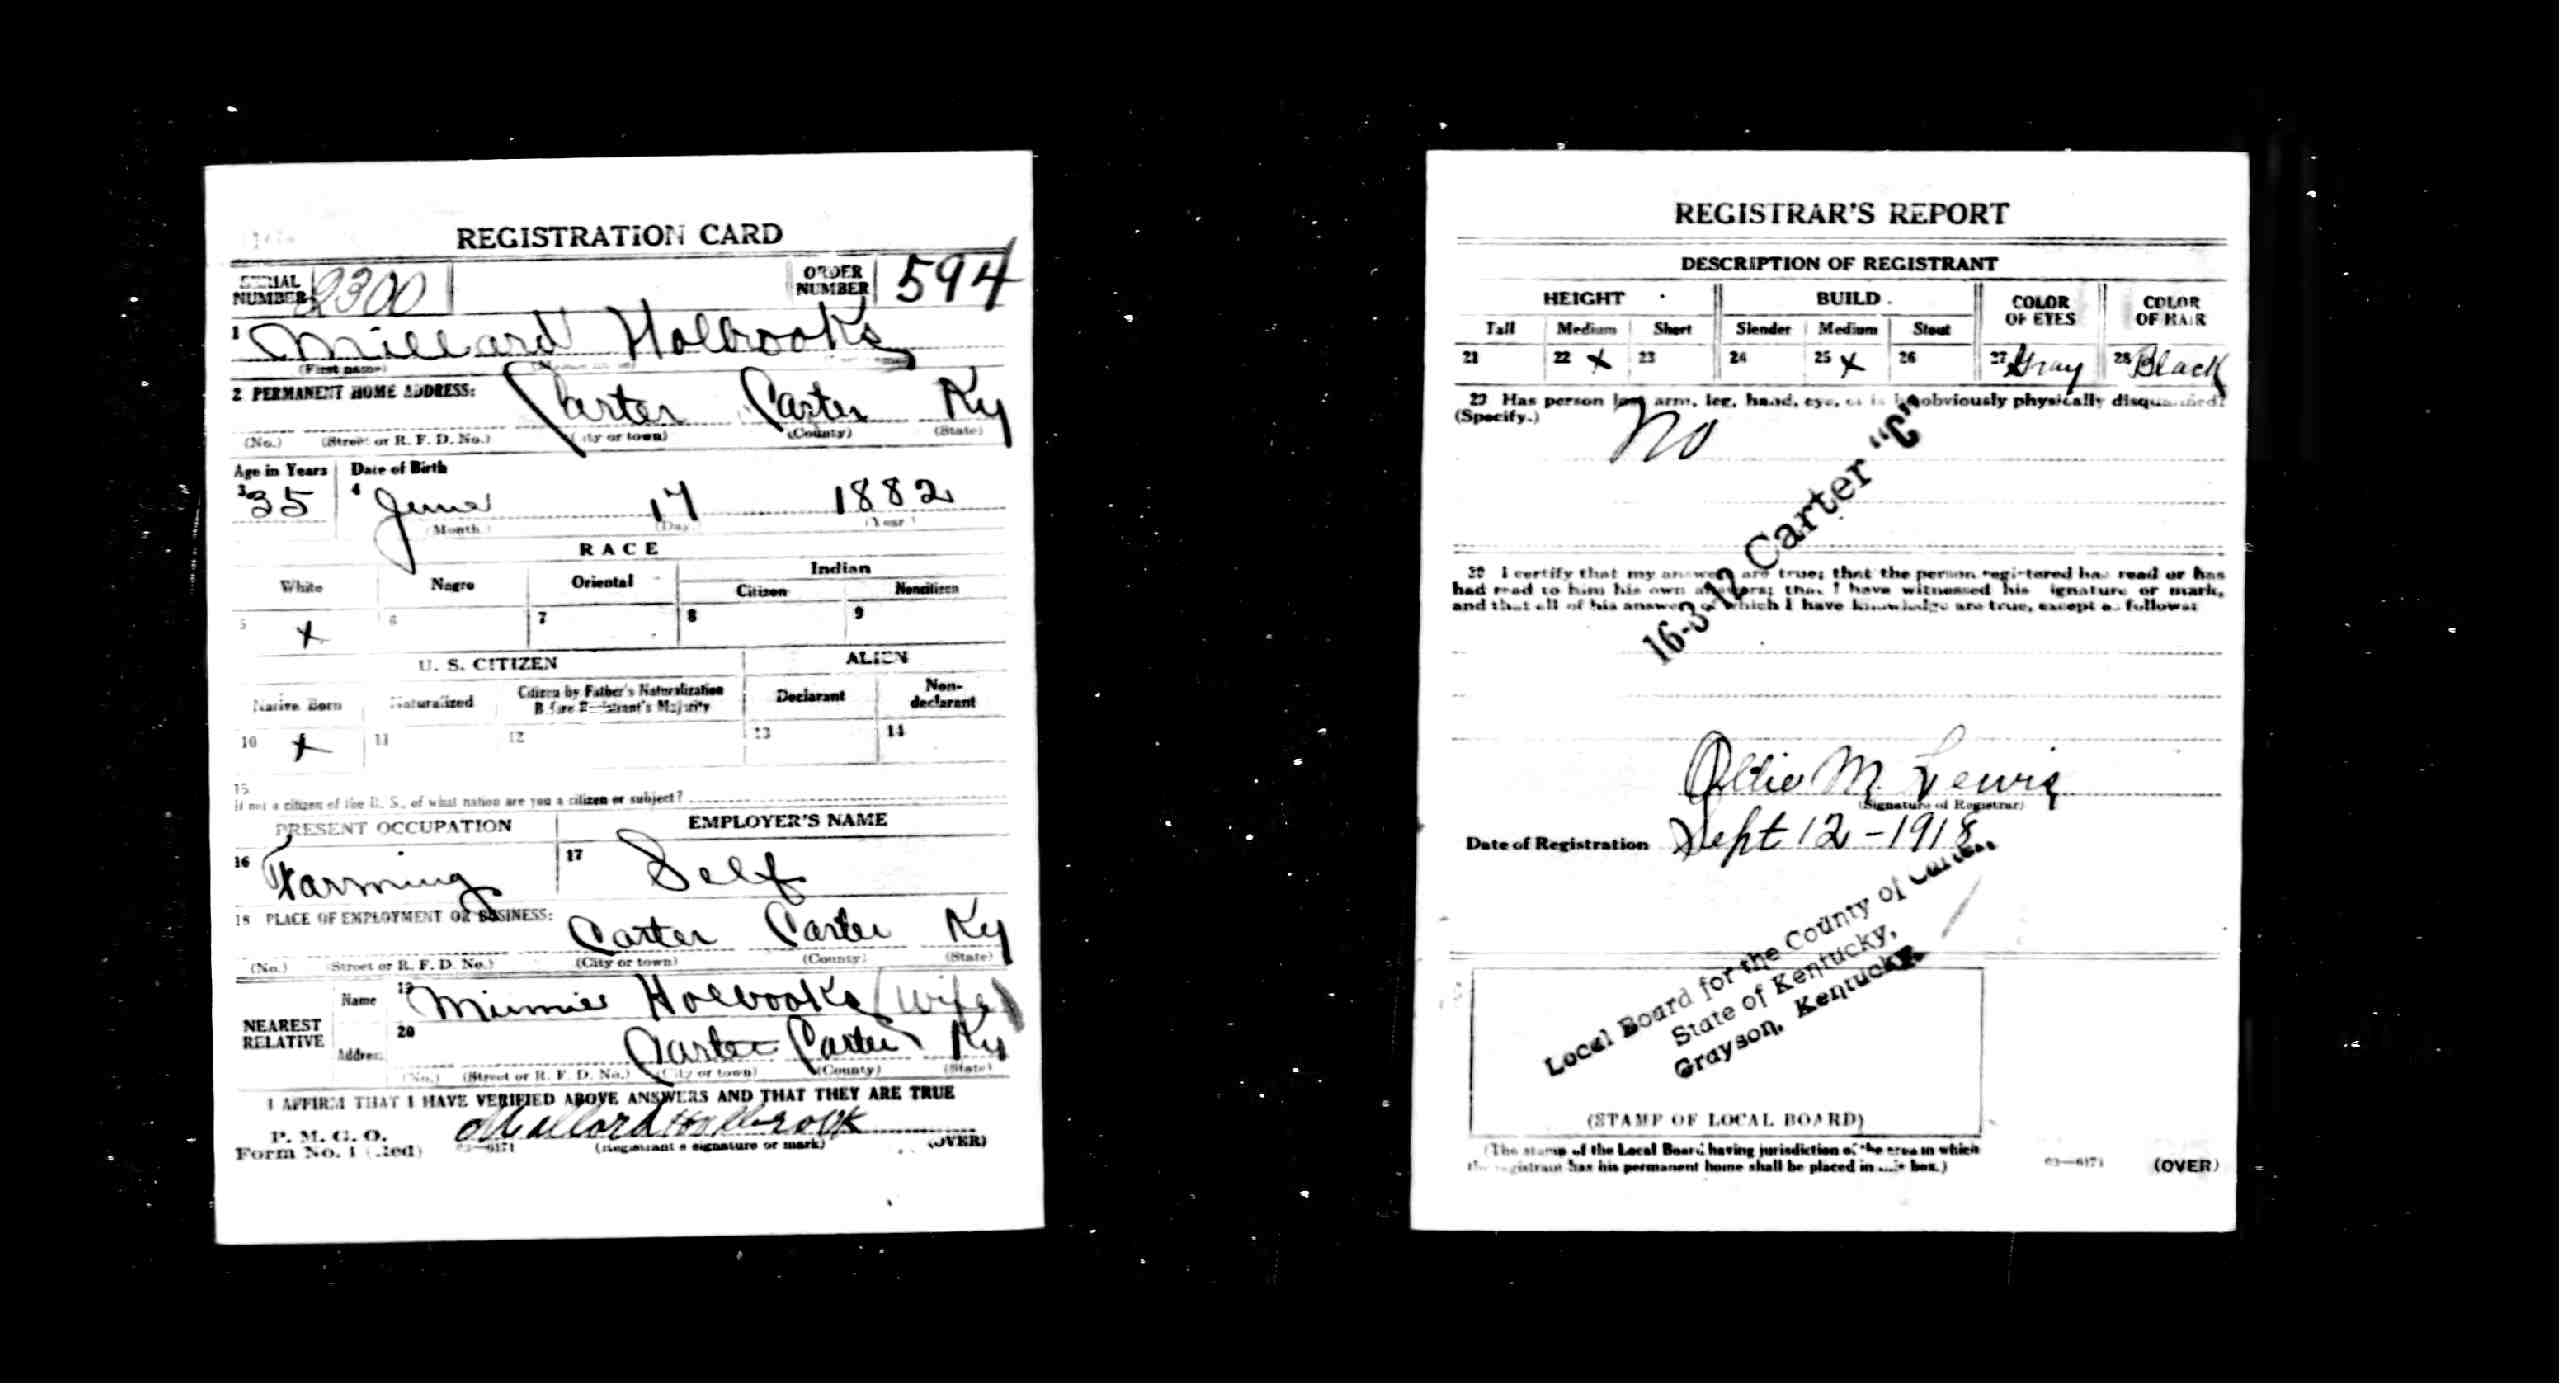 REGISTRATION CARD
SERIAL NUMBER 2300 ORDER NUMBER 594
1 Millard Holbrooks
(First name)
2 PERMANENT HOME ADDRESS: Carter Carter Ky
(No.) (Street or R. F. D. No.) (City or town) (County) (State)
Age in Years Date of Birth
3 35 4 June 17 1882
(Month) (Day) (Year)
RACE
White Negro Oriental Indian
Citizen Noncitizen
5 X 6 7 8 9
U. S. CITIZEN ALIEN
Native Born Naturalized Citizen by Father's Naturalization Before Registrant's Majority Declarant Non-declarant
10 X 11 12 13 14
15
If not a citizen of the U. S., of what nation are you a citizen or subject?
PRESENT OCCUPATION EMPLOYER'S NAME
16 Farming 17 Self
18 PLACE OF EMPLOYMENT OR BUSINESS: Carter Carter Ky
(No.) (Street or R. F. D. No.) (City or town) (County) (State)
NEAREST RELATIVE Name 19 Minnie Holbrooks (Wife)
Address 20 Carter Carter Ky
(No.) (Street or R. F. D. No.) (City or town) (County) (State)
I AFFIRM THAT I HAVE VERIFIED ABOVE ANSWERS AND THAT THEY ARE TRUE
P. M. G. O.
Form No. 1 (Red) 03—6171 Millard Holbrook (Registrant's signature or mark) (OVER)
REGISTRAR'S REPORT
DESCRIPTION OF REGISTRANT
HEIGHT BUILD COLOR OF EYES COLOR OF HAIR
Tall Medium Short Slender Medium Stout
21 22 X 23 24 25 X 26 27 Gray 28 Black
29 Has person lost arm, leg, hand, eye, or is he obviously physically disqualified?
(Specify.) No
16-3-12 Carter "C"
30 I certify that my answers are true; that the person registered has read or has
had read to him his own answers; that I have witnessed his signature or mark,
and that all of his answers of which I have knowledge are true, except as follows:
Ollie M. Lewis
(Signature of Registrar)
Date of Registration Sept 12-1918
Local Board for the County of Carter,
State of Kentucky,
Grayson, Kentucky.
(STAMP OF LOCAL BOARD)
(The stamp of the Local Board having jurisdiction of the area in which
the registrant has his permanent home shall be placed in this box.) 03—6171 (OVER)